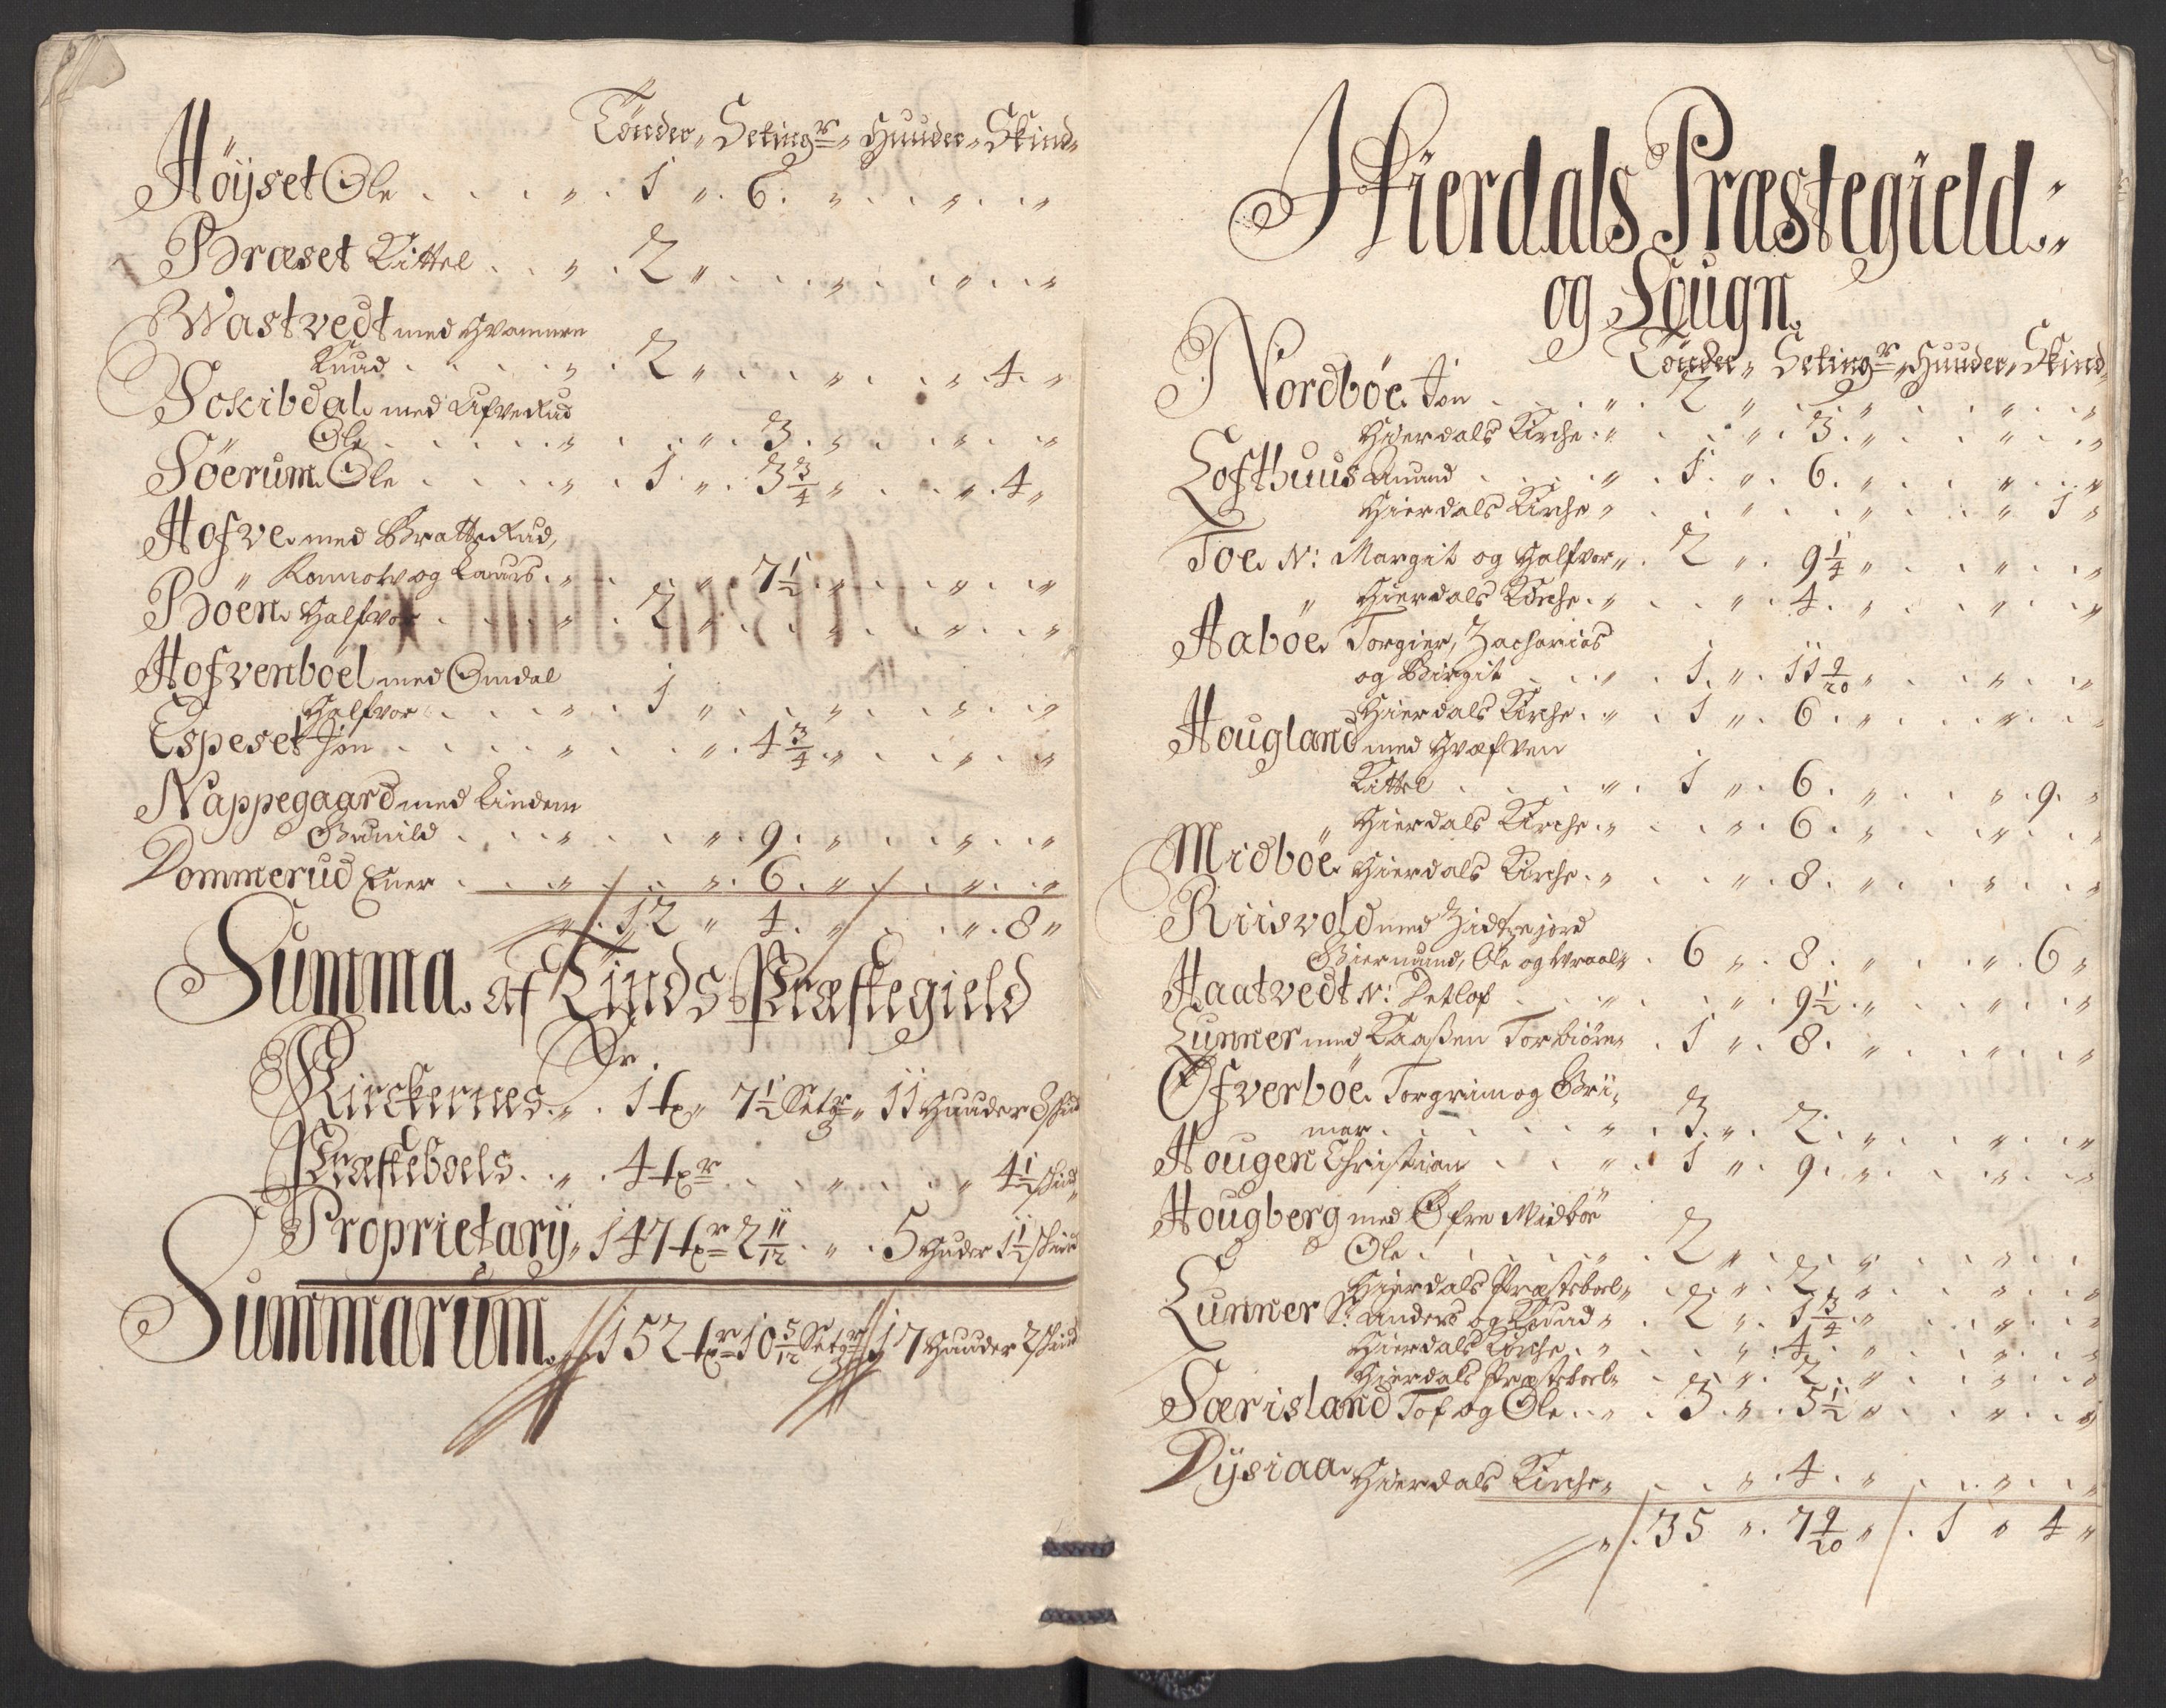 Tönder „ Setingr „ Huuder „ Skind „
Höijset Ole . . . „ . 1 „ . 6 . „ . . „ . . „
Bræset Kittel . . „ . 2 „ . . . „ . . „ . . „
Wastvedt med Hvammen
Knud . . . . „ . 2 „ . . . „ . . „ . 4 . „
Sokibdal med Ufverud
Ole . . . . . „ . . . „ . 3 . „ . . „ . . „
Söerum Ole . . . . „ . 1 . „ . 3 3/4 „ . . . „ . 4 „
Hofve med Bratterud,
„ Ronnow og Laurs . „ . . „ 7 1/2 „ . . „ . . „
Böen Halfvor . . . „ . 2 „ . . . „ . . „ . . „
Hofvenböel med Omdal
Halfvor . . . „ . 1 „ . . . „ . . „ . . „
Espeset Jon . . . . „ . . „ . 4 3/4 „ . . „ . . „
Nappegaard med Lindem
Gunild . . . „ . . . „ . 9 . „ . . „ . . „
Dommerud Ener . . . „ . . . „ . 6 . „ . . „ . . „
„ . 12 „ 4 . „ . . „ . 8 „
Summa af Tinds Præstegield
Kirckernes . „ . 1 tr „ 7 1/2 Setgr „ 11 Huuder 8 skind
Præsteboels . „ . 4 tr . . . „ . . . „ 4 1/2 skind
Proprietarij „ 147 tr 2 11/12 . „ . 5 Huder 1 1/2 skind
Summarum . 152 tr 10 5/12 Setgr 17 Huuder 2 skind
Hierdals Præstegield .
og Sougn .
Tönder „ Setingr „ Huuder „ Skind „
Nordböe Jon . . . . „ . 2 „ . . . „ . . „ . . „
Hierdals Kirche . „ . . . „ . 3 . „ . . „ . . „
Lofthuus Amund . . . . „ . 1 . „ . 6 . „ . . „ . . „
Hierdals Kirche „ . . . „ . . . „ . . „ 1 „
Toe N: Margit og Halfvor „ . 2 „ . 9 1/4 „ . . „ . . „
„ Hierdals Kirche . „ . . „ . 4 . „ . . „ . . „
Aaböe Torgier, Zacharias
og Birgit . . . „ . 1 . „ . 11 9/20 „ . . „ . . „
Hierdals Kirche . „ . 1 „ . 6 . „ . . „ . .
Hougland med Græfven
Kittel . . . . „ . 1 „ . 6 . „ . . „ . 9 . „
„ Hierdals Kirche . „ . . „ . 6 . „ . . „ . . „
Midböe Hierdals Kirche . „ . . „ . 8 . „ . . „ . . „
Riisvold med Zidtzejord
Giermund, Ole og Wraal „ . 6 „ . 8 . „ . . „ . 6 „
Haatvedt N: Detlof . . . „ . . „ . 9 1/2 . „ . . „ . . „
Lunner med Kaaßen Torbiörn „ . 1 „ . 8 . „ . . „ . . „
Öfverböe Torgrim og Gri-
mar . . . . . „ . 3 . „ . 2 . „ . . „ . . „
Hougen Christian . . . „ . 1 „ . 9 . „ . . „ . . „
Hougberg med Øfre Midböe
Ole . . . . . „ . 2 „ . . . „ . . „ . .
Hierdals Præsteboel „ . . „ . 2 . „ . . „ . . „
Lunner S: Anders og Knud „ . 2 „ . 1 3/4 „ . . „ . . „
Hierdals Kirche . „ . . „ . 4 . „ . . „ . . „
Hierdals Præsteboel „ . . „ . 2 . „ . . „ . . „
Særisland Tof og Ole . . „ . 3 . „ . 5 1/2 „ . . „ . . „
Dÿsiaa Hierdals Kirche „ . . „ . 4 . „ . . „ . . „
„ . 35 „ . 7 9/20 „ . 1 „ 4 „